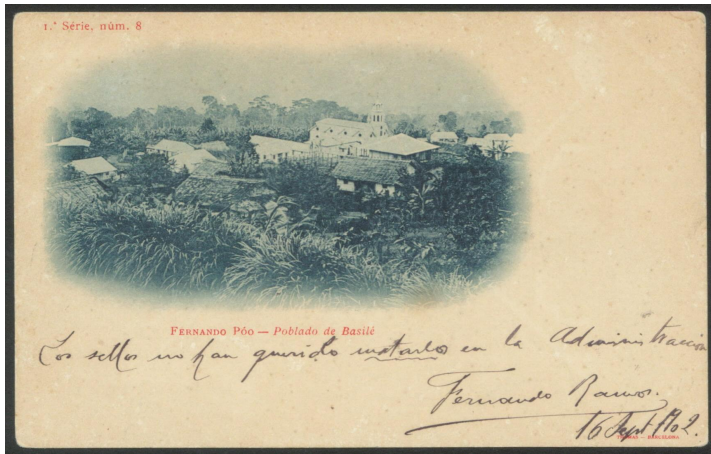 1.ª Série, núm. 8
FERNANDO PÓO — Poblado de Basilé
Los sellos no han querido matarlos en la Administracción
Fernando Ramos.
16 Sept 1902.
THOMAS - BARCELONA